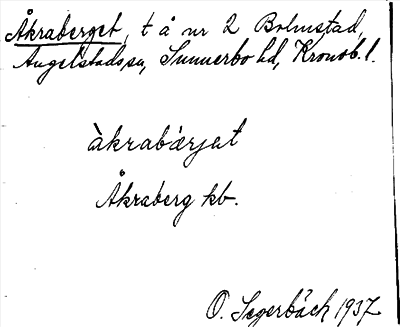 Åkraberget, t å nr 2 Bolmstad,
Angelstads sn, Sunnerbo hd, Kronob. l.
àkrabǽrjat
Åkraberg kb.
O. Segerbäck 1937